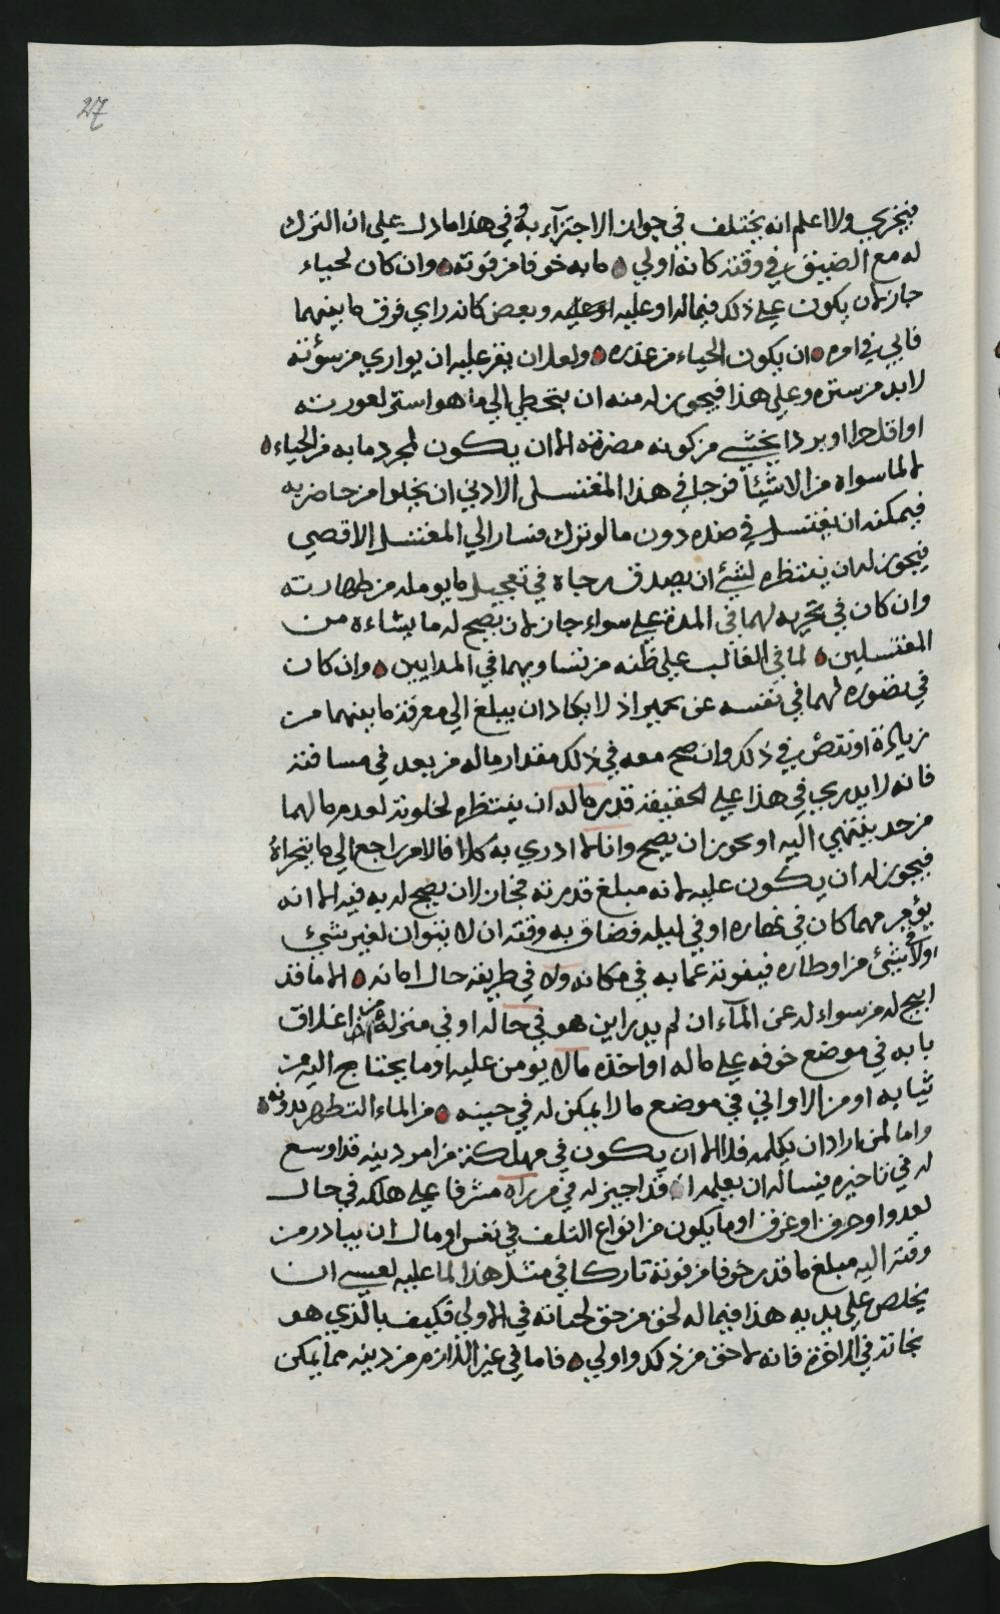 27
فيجزي ولا اعلم انه يختلف في جواز الاجتزآء به وفي هذا ما دل علي ان الترك
له مع الضيق في وقته كانه اولي ما به خوفا من فوته وان كان لحياء
جاز لان يكون علي ذلك فيما له او عليه وبعض كانه راي فرق ما بينهما
فابي في امره ان يكون الحياء من عذره ولعله ان يقر عليه ان يواري من سؤته
لا بد من ستره وعلي هذا فيجوز له منه ان يتخطي الي ما هو استر لعورته
او اقل حرا او بردا يخشي من كونه مضرته الا ان يكون لمجرد ما به من الحياء
لا لما سواه من الاشيئا فرجل في هذا المغتسل الادني ان يخلوا من حاضريه
فيمكنه ان يغتسل في صدره دون ما لو ترك فسار الي المغتسل الاقصي
فيجوز له ان ينتظره لشئ ان يصدق رجاه في تعجيل ما يومله من طهارته
وان كان في تحريه لهما في المدة علي سواء جاز لان يصح له ما يشاءه من
المغتسلين لما في الغالب علي ظنه من تساويهما في المدايين وان كان
في تصوره لهما في نفسه عن تحيير اذ لا يكاد ان يبلغ الي معرفة ما بينهما من
زيادة او نقص في ذلك وان صح معه في ذلك مقدار ماله من بعد في مسافته
فانه لا يدري في هذا علي الحقيقة قدر ماله ان ينتظره لخلوته لعدم ما لهما
من حد ينتهي اليه او يجوز ان يصح وانا لا ادري به كلا فالامر راجع الي ما يتحراه
فيجوز له ان يكون عليه لانه مبلغ قدرته فجاز لان يصح له به فيه الا انه
يؤمر مهما كان في نهاره او في ليله فضاق به وقته ان لا يتوان لغير شئ
ولا في شئ من اوطاره فيفوته عما به في مكانه ولا في طريقه حال امانه الا ما قد
ابيح له من سواه له عن المآء ان لم يدر اين هو في حاله او في منزله من اغلاق
بابه في موضع خوفه علي ماله او اخذه ما لا يومن عليه او ما يحتاج اليه من
ثيابه او من الاواني في موضع ما لا يمكن له في حينه من الماء التطهر بدونه
واما لمن اراد ان يكلمه فلا الا ان يكون في مهلكة من امر دينه قد اوسع
له في تاخيره فيساله ان يعلمه او قد اجيز له في من راه مشرفا علي هلكه في حال
لعدو او حرق او غرق او ما يكون من انواع التلف في نفس او مال ان يبادر من
وقته اليه مبلغ ما قدر خوفا من فوته تاركا في مثل هذا لما عليه لعسي ان
يخلص علي يديه هذا فيما له لحق من حق لحياته في الاولي فكيف بالذي هو
نجاته في الاخرة فانه لاحق من ذلك واولي فاما في غير اللازم من دينه مما يمكن